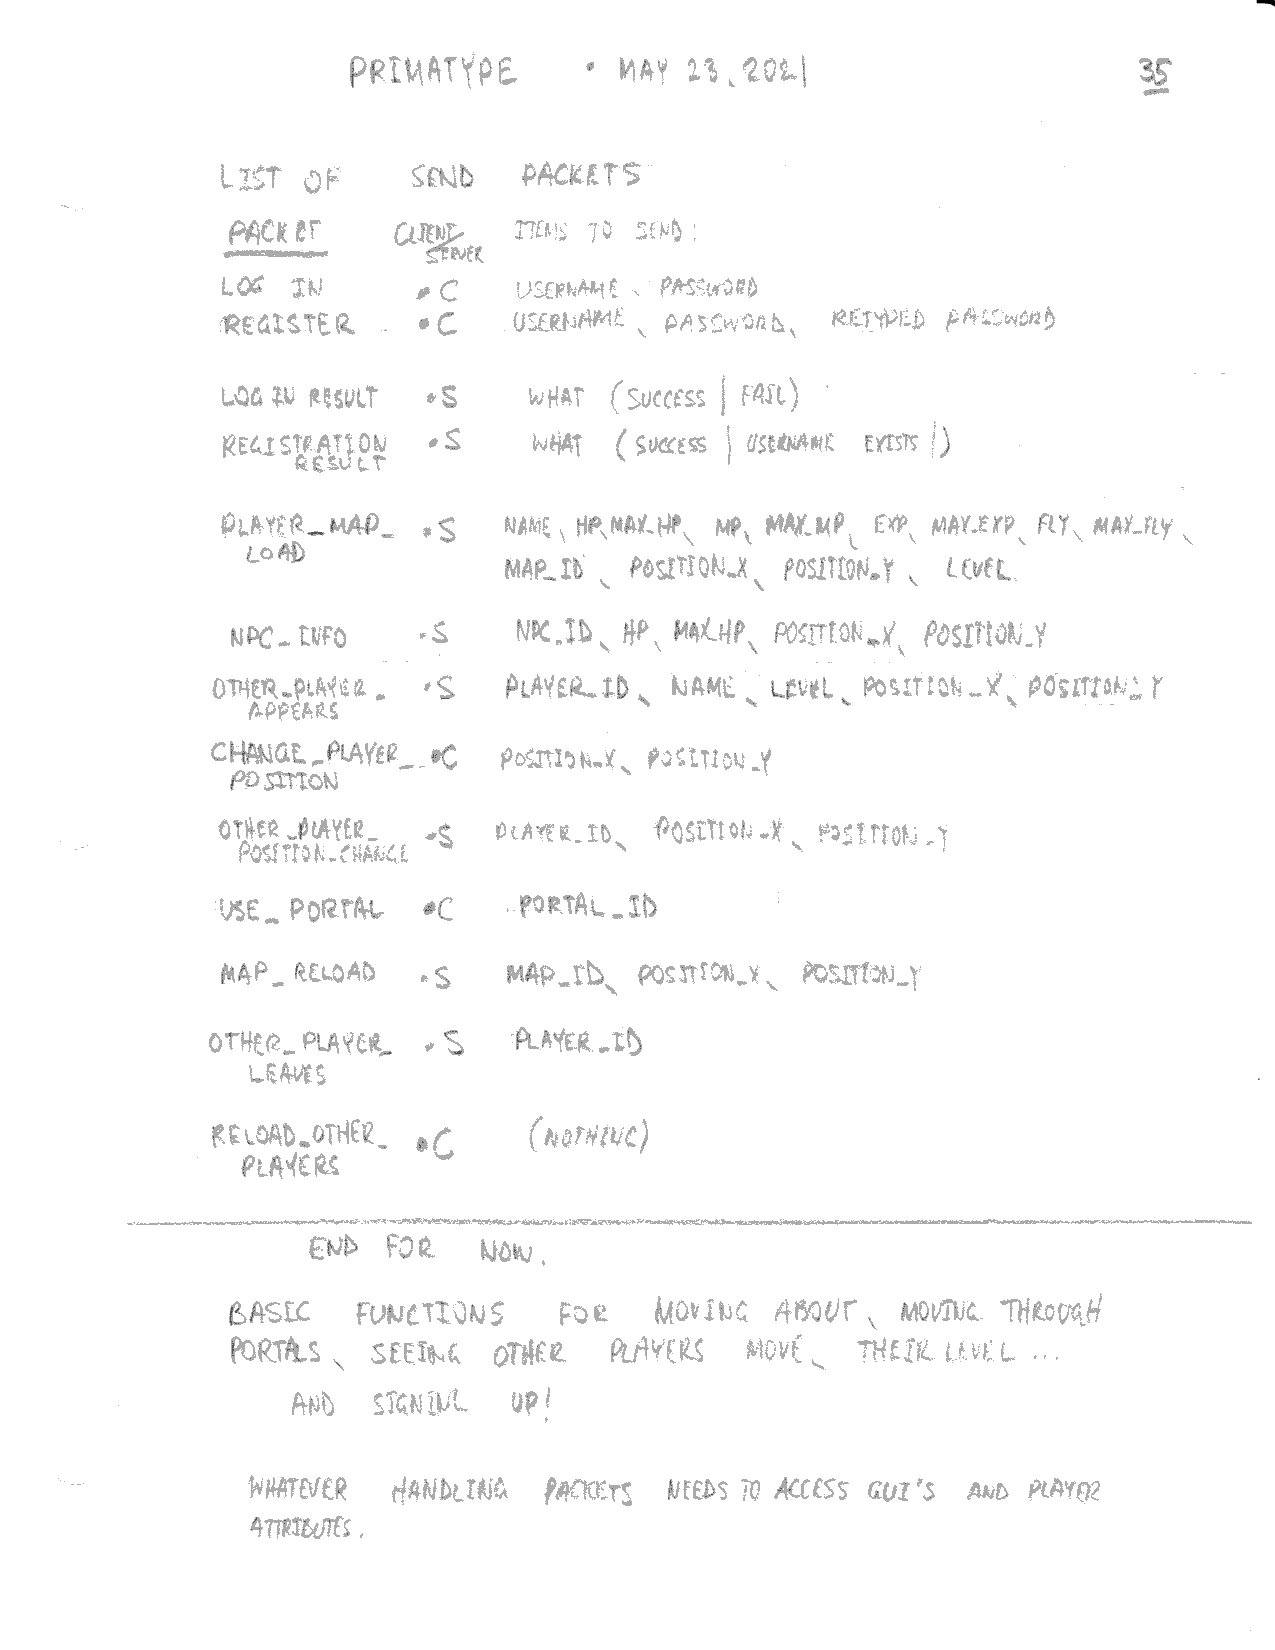 PRIMATYPE • MAY 23, 2021 35
LIST OF SEND PACKETS
PACKET CLIENT/SERVER ITEMS TO SEND:
LOG IN • C USERNAME, PASSWORD
REGISTER • C USERNAME, PASSWORD, RETYPED PASSWORD
LOG IN RESULT • S WHAT (SUCCESS | FAIL)
REGISTRATION • S WHAT (SUCCESS | USERNAME EXISTS |)
RESULT
PLAYER_MAP_ • S NAME, HP, MAX_HP, MP, MAX_MP, EXP, MAX_EXP, FLY, MAX_FLY,
LOAD MAP_ID, POSITION_X, POSITION_Y, LEVEL.
NPC_INFO • S NPC_ID, HP, MAX_HP, POSITION_X, POSITION_Y
OTHER_PLAYER_ • S PLAYER_ID, NAME, LEVEL, POSITION_X, POSITION_Y
APPEARS
CHANGE_PLAYER_ • C POSITION_X, POSITION_Y
POSITION
OTHER_PLAYER_ • S PLAYER_ID, POSITION_X, POSITION_Y
POSITION_CHANGE
USE_PORTAL • C PORTAL_ID
MAP_RELOAD • S MAP_ID, POSITION_X, POSITION_Y
OTHER_PLAYER_ • S PLAYER_ID
LEAVES
RELOAD_OTHER_ • C (NOTHING)
PLAYERS
END FOR NOW.
BASIC FUNCTIONS FOR MOVING ABOUT, MOVING THROUGH
PORTALS, SEEING OTHER PLAYERS MOVE, THEIR LEVEL ...
AND SIGNING UP!
WHATEVER HANDLING PACKETS NEEDS TO ACCESS GUI'S AND PLAYER
ATTRIBUTES.